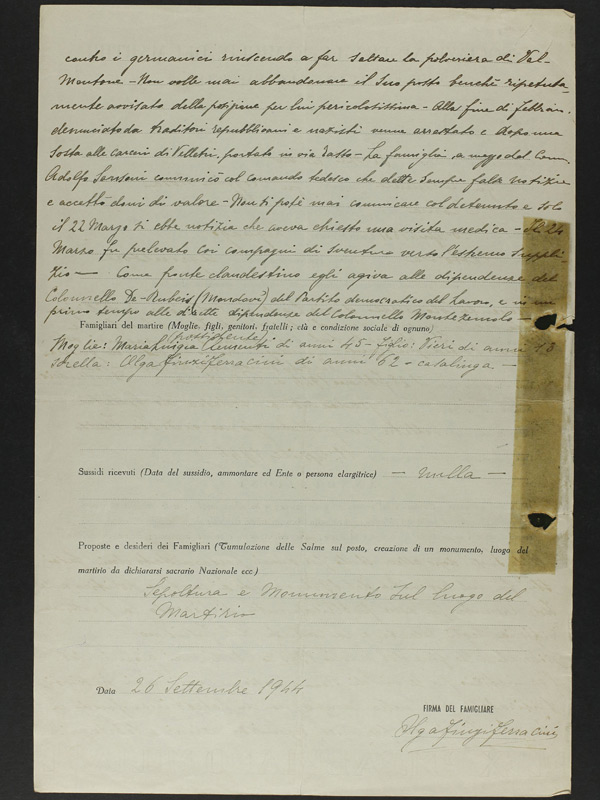 contro i germanici riuscendo a far saltare la polveriera di Val-
Montone - Non volle mai abbandonare il suo posto benchè ripetuta-
mente avvisato della posizione per lui pericolosissima - Alla fine di Febbraio
denunciato da traditori repubblicani e nazisti venne arrestato e dopo una
sosta alle carceri di Velletri, portato in via Tasso - La famiglia, a mezzo del Com.
Adolfo comunicò col comando tedesco che dette sempre false notizie
e accettò doni di valore - Non si potè mai comunicare col detenuto e solo
il 22 Marzo si ebbe notizia che aveva chiesto una visita medica - Il 24
Marzo fu prelevato coi compagni di sventura verso l'estremo suppli-
zio - Come fronte clandestino egli agiva alle dipendenze del
Colonnello De-Rubeis (Mondavi) del Partito democratico del Lavoro, e in un
primo tempo alle dirette dipendenze del Colonnello Montezemolo -
Famigliari del martire (Moglie, figli, genitori, fratelli ; età e condizione sociale di ognuno)
Moglie: Maria Luigia Clementi di anni 45 - figlio: Vieri di anni 13
sorella: Olga Finzi Ferracini di anni 62 - casalinga -
Sussidi ricevuti (Data del sussidio, ammontare ed Ente o persona elargitrice) - nulla -
Proposte e desideri dei Famigliari (Tumulazione delle Salme sul posto, creazione di un monumento, luogo del
martirio da dichiararsi sacrario Nazionale ecc)
Sepoltura e Monumento sul luogo del
Martirio
Data 26 Settembre 1944
FIRMA DEL FAMIGLIARE
Olga Finzi Ferracini